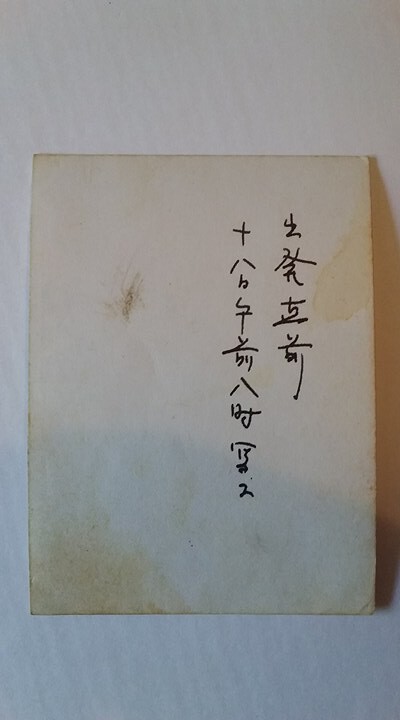 出発直前
十八日午前八时写ス